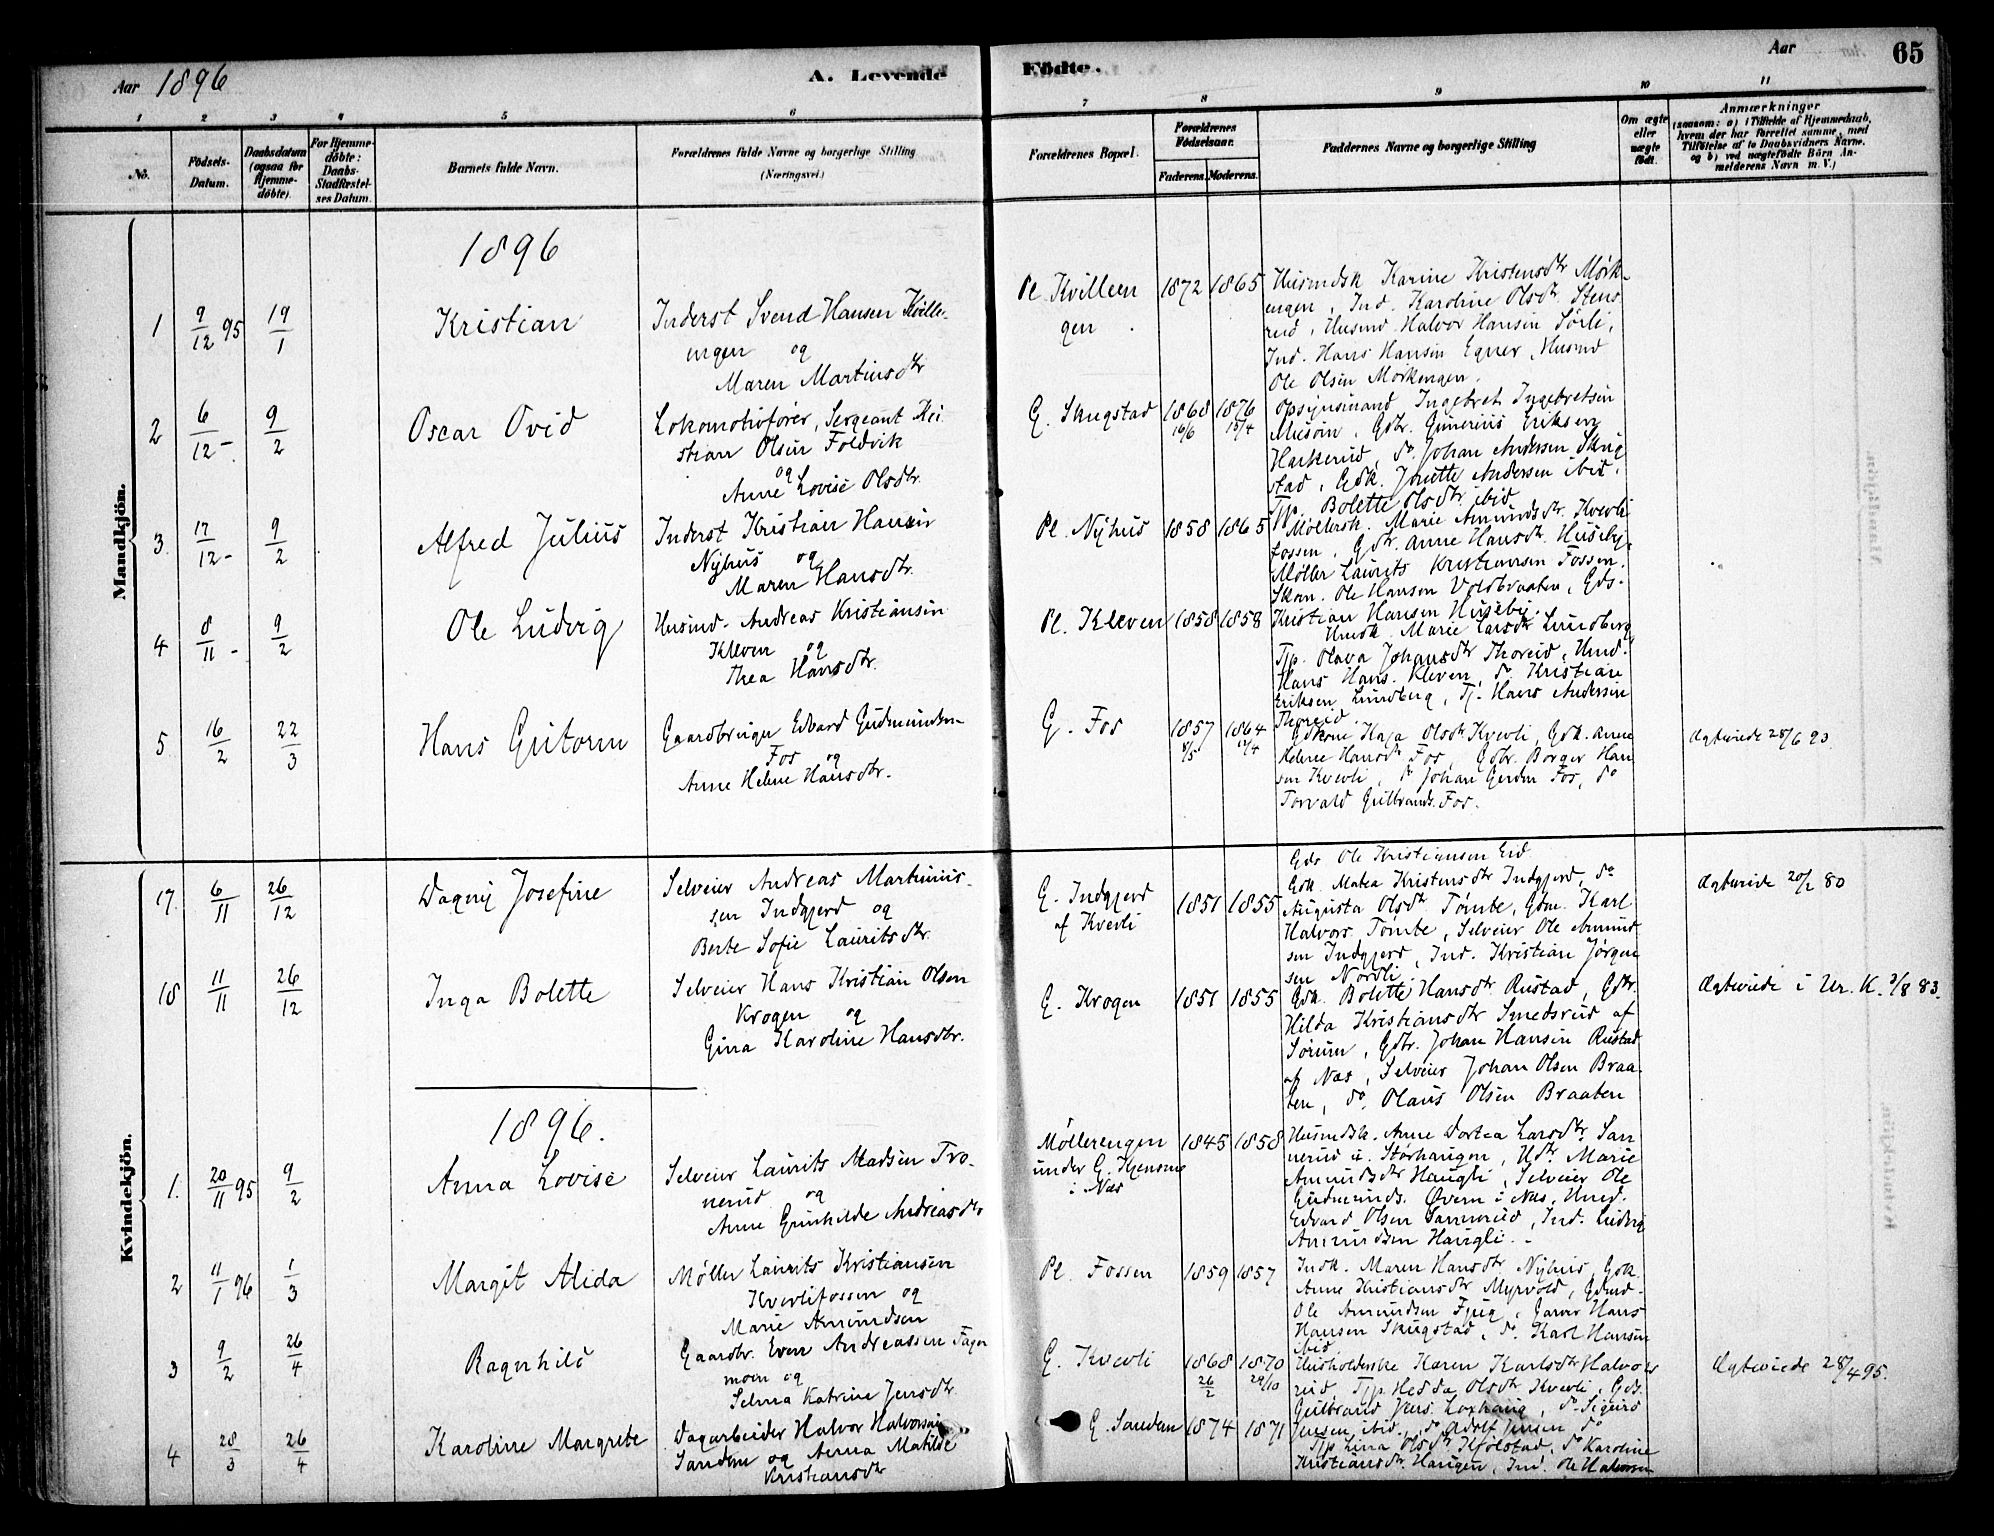 Aar 1896
A. Levende
Födte.
Aar
65
1 2 3 4 5 6 7 8 9 10 11
No.
Födsels-
Datum.
Daabsdatum
(ogsaa for
Hjemme-
döbte).
For Hjemme-
döbte:
Daabs-
Stadfæstel-
ses Datum.
Barnets fulde Navn.
Forældrenes fulde Navne og borgerlige Stilling
(Næringsvei.)
Forældrenes Bopæl.
Forældrenes
Födselsaar.
Faderens. Moderens.
Faddernes Navne og borgerlige Stilling
Om ægte
eller
uægte
født.
Anmærkninger
(saasom: a) i Tilfælde af Hjemmedaab,
hvem der har forrettet samme, med
Tilföielse af to Daabsvidners Navne,
og b) ved uægtefödte Börn An-
melderens Navn m. V.)
Mandkjön.
1896
1 9/12 95 19/1 Kristian
Inderst Svend Hansen Kville-
engen og
Maren Martinsdtr
Pl. Kvilleen
gen
1872 1865
Husmdsk Karine Kristensdtr Mørk-
engen, Ind. Karoline Olsdtr. Stens-
reid, Husmd Halvor Hansen Sørli,
Ind. Hans Hansen Egner, Husmd
Ole Olsen Mørkengen.
2 6/12 - 9/2 Oscar Ovid
Lokomotivfører, Sergeant Kri
stian Olsen Foldvik
og
Anne Lovise Olsdtr.
G. Skugstad
1868 16/6 1876 15/4
Opsynsmand Ingebret Ingebretsen
Gdtr. Gunerius Eriksen
Harkerud, do. Johan Andersen Skug
stad, Gdk. Jonette Andersen ibid.
Tjp. Bolette Olsdtr. ibid
3 17/12 - 9/2 Alfred Julius
Inderst Kristian Hansen
Nyhus og
Maren Hansdtr.
Pl. Nyhus
1858 1865
Møllersk. Marie Amundsdtr. Kvevli
fossen, Gdtr. Anne Hansdtr. Huseby,
Møller Laurits Kristiansen Fossen,
Skom. Ole Hansen Voldbraaten, Gds.
Kristian Hansen Huseby.
4 8/11 - 9/2 Ole Ludvig
Husmd. Andreas Kristiansen
Kleven og
Thea Hansdtr.
Pl. Kleven
1858 1858
Hmdk. Marie Larsdtr Lundberg
Tjp. Olava Johansdtr Thoreid, Hmd.
Hans Hans. Kleven, do Kristian
Eriksen Lundberg, Tj. Hans Andersen
Thoreid.
5 16/2 22/3 Hans Gutorm
Gaardbruger Edvard Gudmundsen
Fos og
Anne Helene Hansdtr.
G. Fos
1857 8/5 1864 12/4
Gdkone Kaja Olsdtr Kvevli, Gdk. Anne
Helene Hansdtr Fos, Gdbr. Borger Han
sen Kvevli, do Johan Gerdm Fos, do
Torvald Gulbrands. Fos.
Ægteviede 28/6 93.
Kvindekjön.
17. 6/11 26/12 Dagny Josefine
Selveier Andreas Martinius-
sen Indgjerd og
Berte Sofie Lauritsdtr.
G. Indgjerd
af Kvevli
1851 1855
Gds Ole Kristiansen Eid
Gdk. Matea Kristensdtr Indgjerd, do
Augusta Olsdtr Tømte, Gdm. Karl
Halvors. Tømte, Selveier Ole Amund
sen Indgjerd, Ind. Kristian Jørgen
sen Nordli
Ægteviede 20/2 80
18 11/11 26/12 Inga Bolette
Selveier Hans Kristian Olsen
Krogen og
Gina Karoline Hansdtr.
G. Krogen
1851 1855
Gdk. Bolette Hansdtr. Rustad, Gdtr.
Hilda Kristiansdtr Smedsrud af
Sørum, Gdbr. Johan Hansen Rustad
af Næs, Selveier Johan Olsen Braa-
ten, do. Olaus Olsen Braaten
Ægteviede i Ur. K. 3/8 83.
1896.
1. 20/11 95 9/2 Anna Lovise
Selveier Laurits Madsen Tro-
nerud og
Anne Gunhilde Andreasdtr
Møllerengen
under G. Hjensmo
i Næs
1845 1858
Husmdsk. Anne Dortea Larsdtr. San
nerud u. Størhaugen, Hdtr. Marie
Amundsdtr Haugli, Selveier Ole
Gudmunds. Øvern i Næs, Hmd.
Edvard Olsen Sannerud, Ind. Ludvig
Amundsen Haugli.
2 11/1 96 1/3 Margit Alida
Møller Laurits Kristiansen
Kvevlifossen og
Marie Amundsen
Pl. Fossen
1859 1857
Indk. Maren Hansdtr Nyhus, Gdk.
Anne Kristiansdtr Myrvold, Gdmd.
Ole Amundsen Fjug, Garver Hans
Hansen Skugstad, do. Karl Hansen
ibid
3 9/2 26/4 Ragnhild
Gaardbr. Even Andreassen Fager
moen og
Selma Katrine Jensdtr.
G. Kvevli
1868 26/2 1870 29/10
Husholderske Karen Karlsdtr Halvors
rud, Tjp. Hedda Olsdtr Kvevli, Gds.
Gulbrand Jens. Loxhaug, do Sigurd
Jensen ibid., do Adolf Jensen do
Ægteviede 28/4 95.
4 28/3 26/4 Karoline Margrete
Dagarbeider Halvor Halvorsen
Sanden og Anna Matilde
Kristiansdtr
G. Sanden
1874 1871
Tjp Lina Olsdtr Kjølstad, do Karoline
Kristiansdtr. Haugen, Ind. Ole Halvorsen